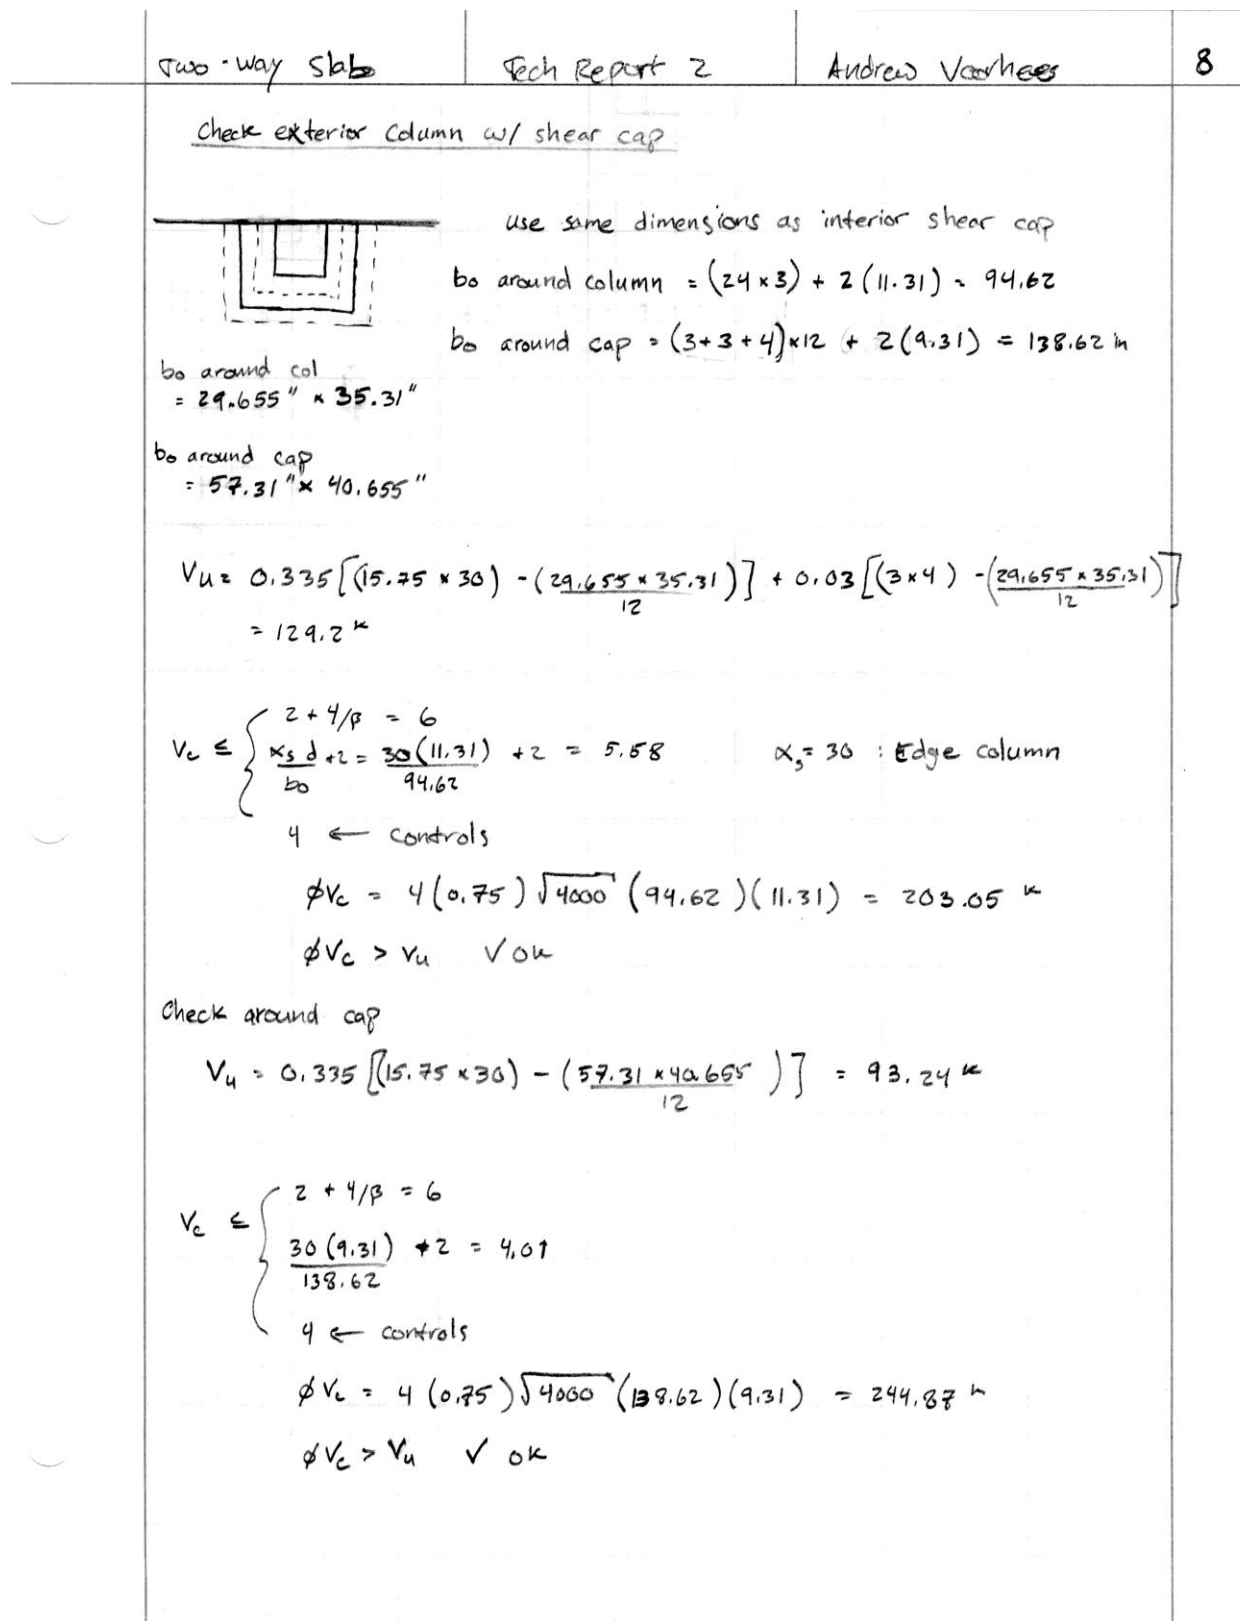 Two-Way Slabs Tech Report 2 Andrew Voorhees 8
Check exterior column w/ shear cap
use same dimensions as interior shear cap
bo around column = (24 x 3) + 2 (11.31) = 94.62
bo around cap = (3+3+4)x12 + 2(9.31) = 138.62 in
bo around col
= 29.655" x 35.31"
bo around cap
= 57.31" x 40.655"
Vu = 0.335[(15.75 x 30) - (29.655 x 35.31)/12] + 0.03[(3x4) - (29.655 x 35.31)/12]
= 129.2 k
Vc ≤ { 2 + 4/β = 6
αs d/bo + 2 = 30(11.31)/94.62 + 2 = 5.58 αs = 30 : Edge column
4 ← controls
φVc = 4(0.75)√4000 (94.62)(11.31) = 203.05 k
φVc > Vu ✓ OK
Check around cap
Vu = 0.335[(15.75 x 30) - (57.31 x 40.655)/12] = 93.24 k
Vc ≤ { 2 + 4/β = 6
30(9.31)/138.62 + 2 = 4.01
4 ← controls
φVc = 4(0.75)√4000 (138.62)(9.31) = 244.87 k
φVc > Vu ✓ OK